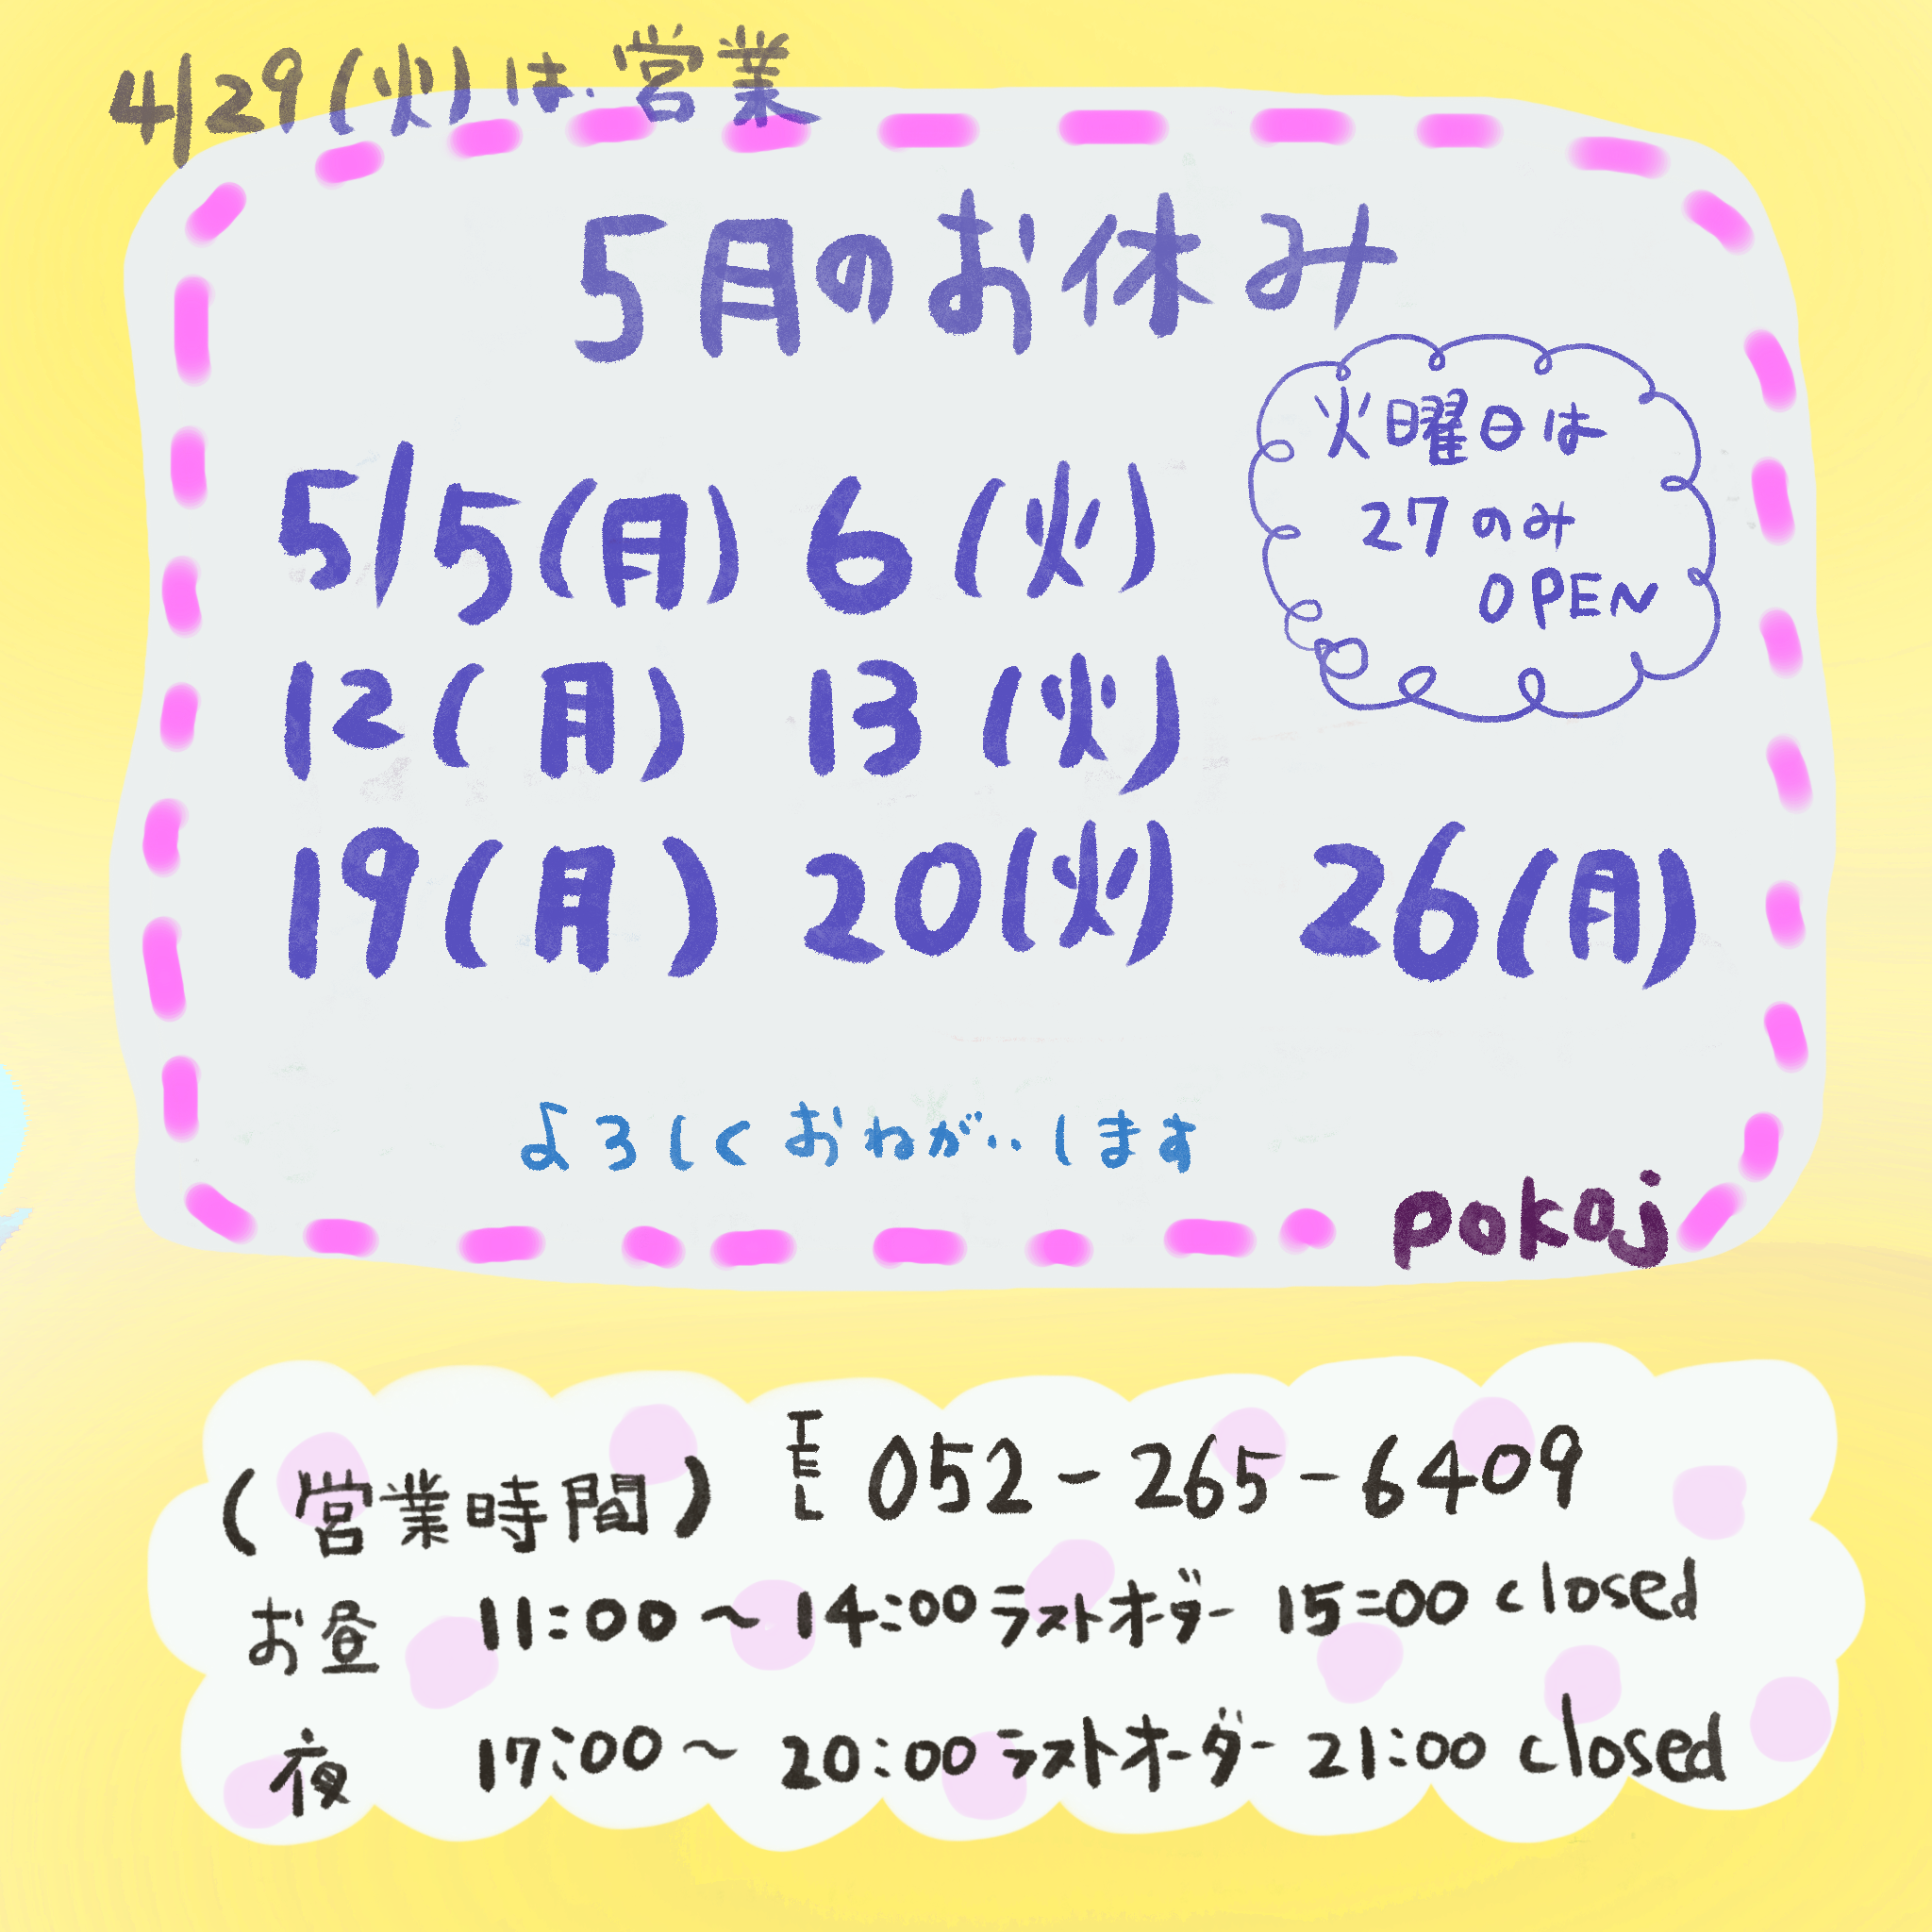 4/29(火)は.営業
5月のお休み
火曜日は
27のみ
OPEN
5/5(月) 6(火)
12(月) 13(火)
19(月) 20(火) 26(月)
よろしくおねがいします
pokaj
(営業時間) TEL 052-265-6409
お昼 11:00〜14:00ラストオーダー 15:00 closed
夜 17:00〜20:00ラストオーダー 21:00 closed